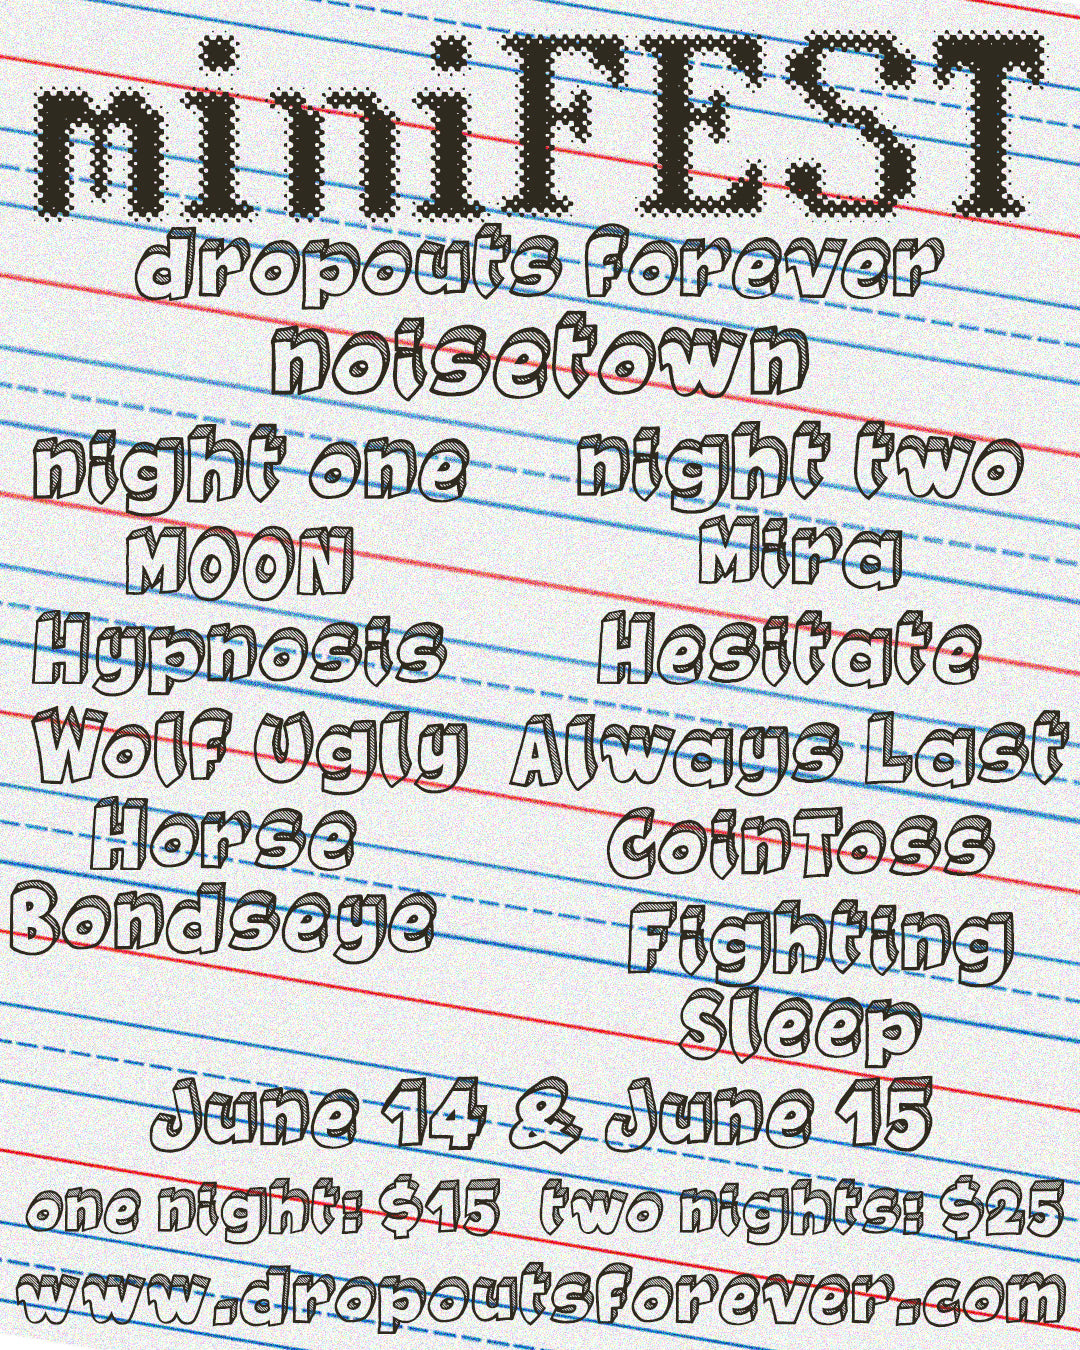 miniFEST
dropouts forever
noisetown
night one
MOON
Hypnosis
Wolf Ugly
Horse
Bondseye
night two
Mira
Hesitate
Always Last
CoinToss
Fighting
Sleep
June 14 & June 15
one night: $15 two nights: $25
www.dropoutsforever.com